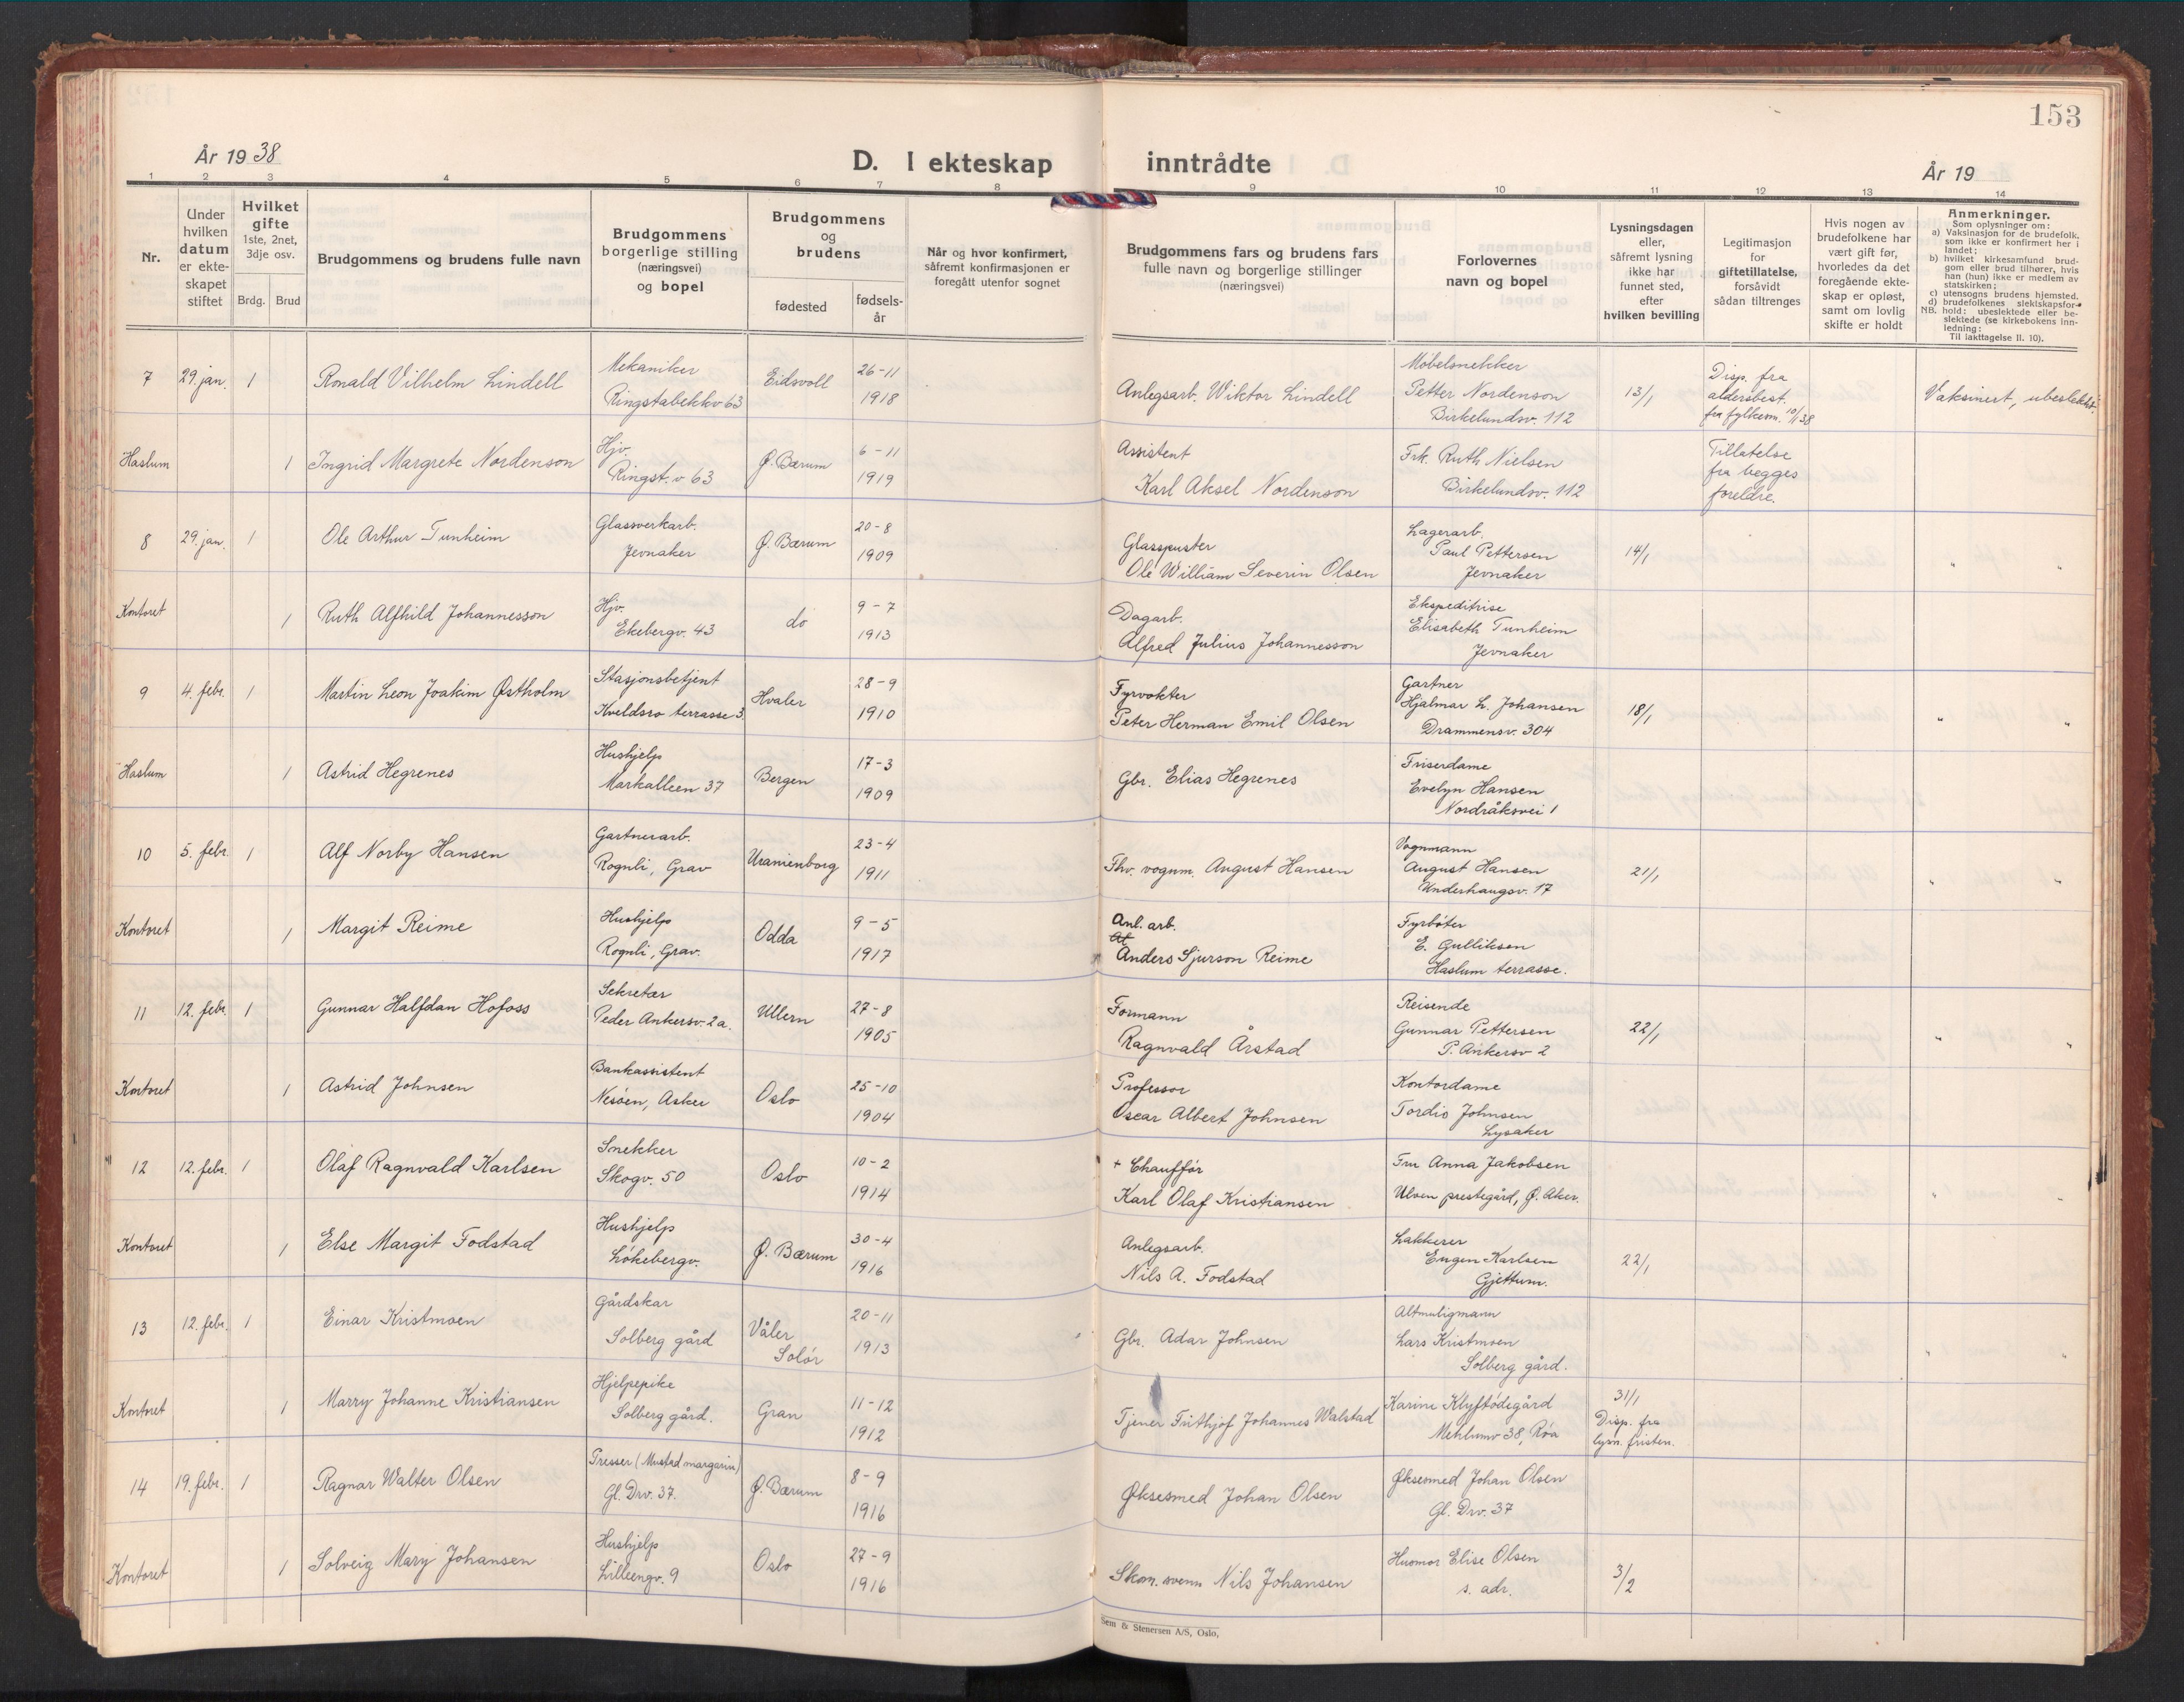 153
År 1938
D. I ekteskap inntrådte
År 19
1 2 3 4 5 6 7 8 9 10 11 12 13 14
Nr.
Under hvilken datum er ekteskapet stiftet
Hvilket gifte
1ste, 2net, 3dje osv.
Brdg. Brud
Brudgommens og brudens fulle navn
Brudgommens borgerlige stilling (næringsvei) og bopel
Brudgommens og brudens
fødested
fødselsår
Når og hvor konfirmert, såfremt konfirmasjonen er foregått utenfor sognet
Brudgommens fars og brudens fars fulle navn og borgerlige stillinger (næringsvei)
Forlovernes navn og bopel
Lysningsdagen eller, såfremt lysning ikke har funnet sted, efter hvilken bevilling
Legitimasjon for giftetillatelse, forsåvidt sådan tiltrenges
Hvis nogen av brudefolkene har vært gift før, hvorledes da det foregående ekteskap er opløst, samt om lovlig skifte er holdt
Anmerkninger.
Som oplysninger om:
a) Vaksinasjon for de brudefolk, som ikke er konfirmert her i landet;
b) hvilket kirkesamfund brudgom eller brud tilhører, hvis han (hun) ikke er medlem av statskirken;
c) utensogns brudens hjemsted.
d) brudefolkenes slektskapsforhold: ubeslektede eller beslektede (se kirkebokens innledning:
NB.
Til iakttagelse II. 10).
7 29. jan. 1 Ronald Vilhelm Lindell Mekaniker Ringstabekkv 63 Eidsvoll 26-11 1918 Anlegsarb. Wiktor Lindell Møbelsnekker Petter Nordenson Birkelundsv. 112 13/1 Disp. fra aldersbest. fra fylkesm. 10/1 38 Vaksinert, ubeslektet.
Haslum 1 Ingrid Margrete Nordenson Hjv. Ringst.v 63 Ø. Bærum 6-11 1919 Assistent Karl Aksel Nordenson Frk. Ruth Nielsen Birkelundsv. 112 Tillatelse fra begges foreldre.
8 29. jan. 1 Ole Arthur Tunheim Glassverkarb. Jevnaker Ø. Bærum 20-8 1909 Glasspuster Ole William Severin Olsen Lagerarb. Paul Pettersen Jevnaker 14/1 " "
Kontoret 1 Ruth Alfhild Johannesson Hjv. Ekebergv. 43 do 9-7 1913 Dagarb. Alfred Julius Johannesson Ekspeditrise Elisabeth Tunheim Jevnaker
9 4. febr. 1 Martin Leon Joakim Østholm Stasjonsbetjent Kveldsro terrasse 3. Hvaler 28-9 1910 Fyrvokter Peter Herman Emil Olsen Gartner Hjalmar L. Johansen Drammensv. 304 18/1 " "
Haslum 1 Astrid Hegrenes Hushjelp Markalleen 37 Bergen 17-3 1909 Gbr. Elias Hegrenes Friserdame Evelyn Hansen Nordråksvei 1
10 5. febr. 1 Alf Norby Hansen Gartnerarb. Rognli, Grav Uranienborg 23-4 1911 Fhv. vognm. August Hansen Vognmann August Hansen Underhaugsv. 17 21/1 " "
Kontoret 1 Margit Reime Hushjelp Rognli, Grav. Odda 9-5 1917 Anl. arb. Anders Sjurson Reime Fyrbøter E. Gulliksen Haslum terrasse.
11 12. febr. 1 Gunnar Halfdan Hofoss Sekretær Peder Ankersv. 2a. Ullern 27-8 1905 Formann Ragnvald Årstad Reisende Gunnar Pettersen P. Ankersv 2 22/1 " "
Kontoret 1 Astrid Johnsen Bankassistent Nesøen, Asker Oslo 25-10 1904 Professor Oscar Albert Johnsen Kontordame Tordis Johnsen Lysaker
12 12. febr. 1 Olaf Ragnvald Karlsen Snekker Skogv. 50 Oslo 10-2 1914 + Chauffør Karl Olaf Kristiansen Fru Anna Jakobsen Ulven prestegård, Ø. Aker. " "
Kontoret 1 Else Margit Fodstad Hushjelp Løkebergv. Ø. Bærum 30-4 1916 Anlegsarb. Nils A. Fodstad Lakkerer Eugen Karlsen Gjettum. 22/1
13 12. febr. 1 Einar Kristmoen Gårdskar Solberg gård Våler Solør 20-11 1913 Gbr. Adar Johnsen Altmuligmann Lars Kristmoen Solberg gård. " "
Kontoret 1 Marry Johanne Kristiansen Hjelpepike Solberg gård. Gran 11-12 1912 Tjener Frithjof Johannes Walstad Karine Klyftødegård Mehlumv 38, Røa 31/1 Disp. fra lysn. fristen.
14 19. febr. 1 Ragnar Walter Olsen Presser (Mustad margarin) Gl. Drv. 37. Ø. Bærum 8-9 1916 Øksesmed Johan Olsen Øksesmed Johan Olsen Gl. Drv. 37
Kontoret 1 Solveig Mary Johansen Hushjelp Lilleengv. 9 Oslo 27-9 1916 Skom. svenn Nils Johansen Husmor Elise Olsen s. adr. 3/2
Sem & Stenersen A/S, Oslo,